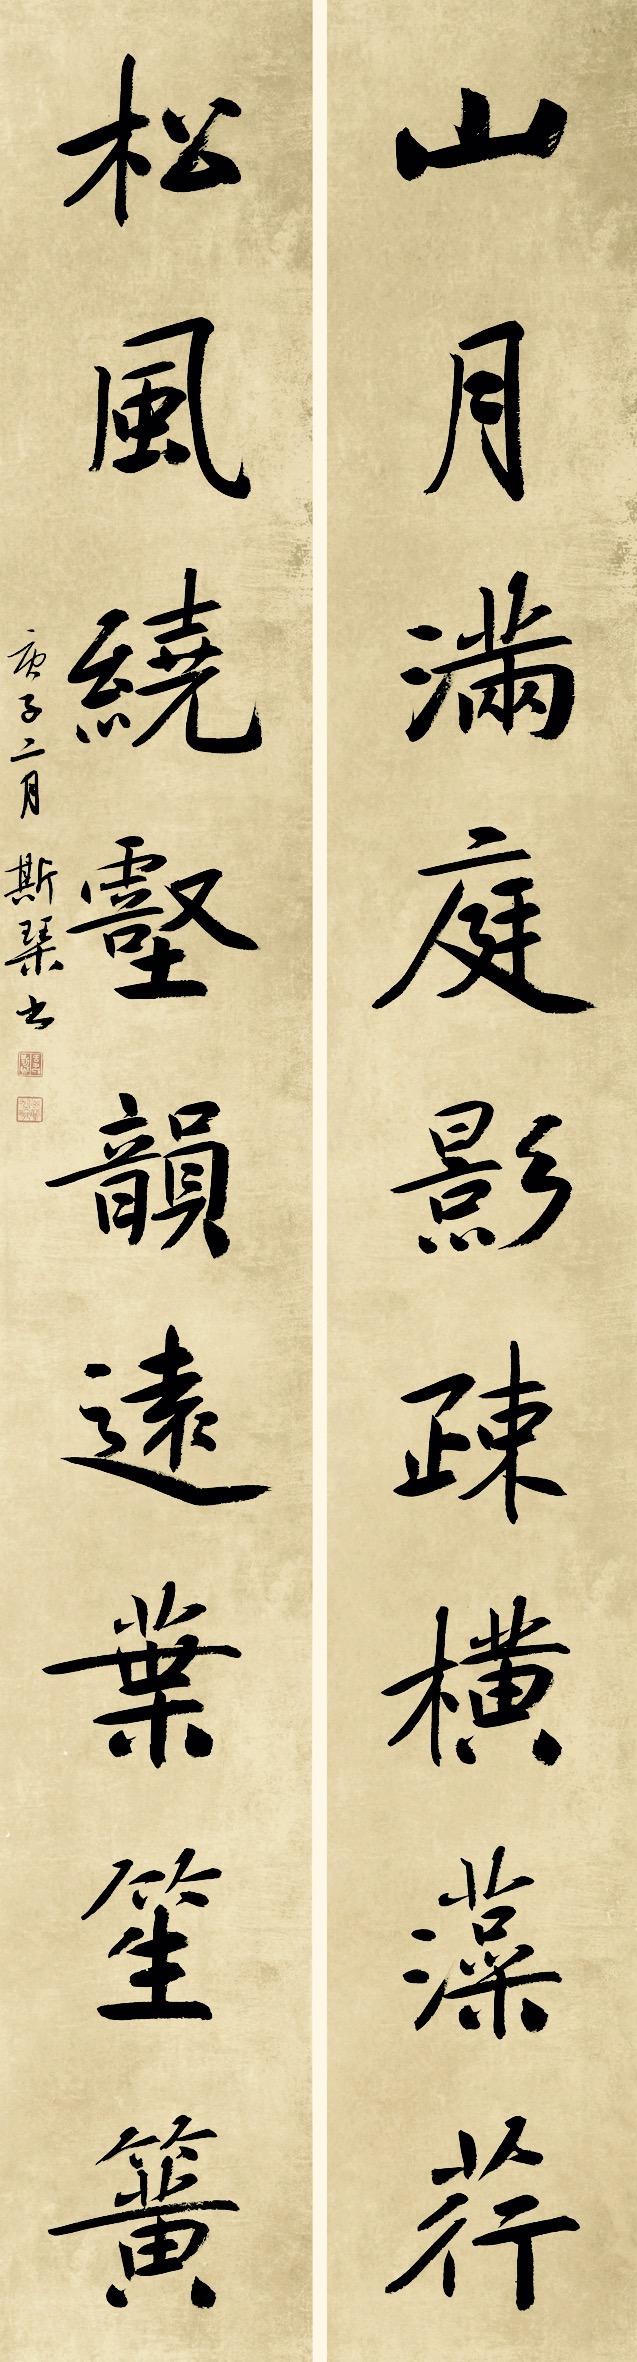 山月滿庭影疎橫藻荇
松風繞壑韻遠葉笙簧
庚子二月 斯琹书